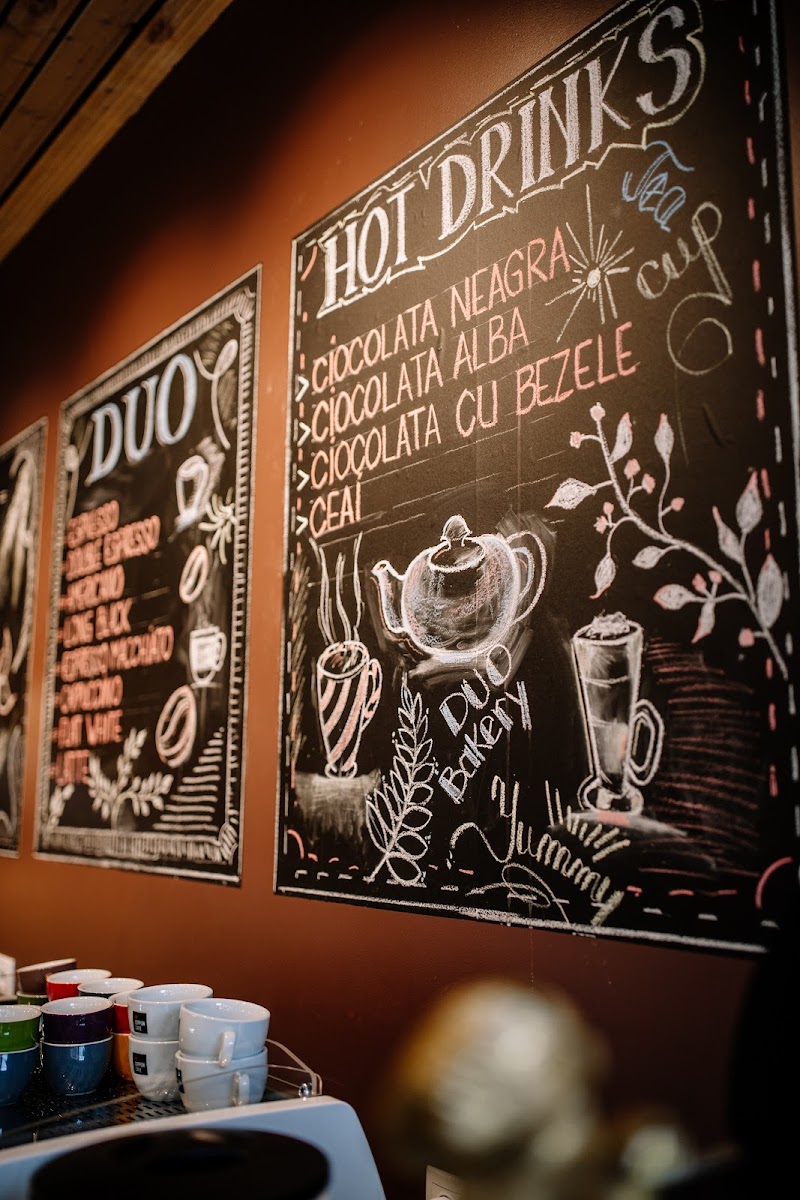 DUO
ESPRESSO
DOUBLE ESPRESSO
LONG BLACK
ESPRESSO MACCHIATO
CAPPUCCINO
FLAT WHITE
LATTE
HOT DRINKS
Tea
cup
> CIOCOLATA NEAGRA
> CIOCOLATA ALBA
> CIOCOLATA CU BEZELE
> CEAI
DUO
Bakery
Yummy